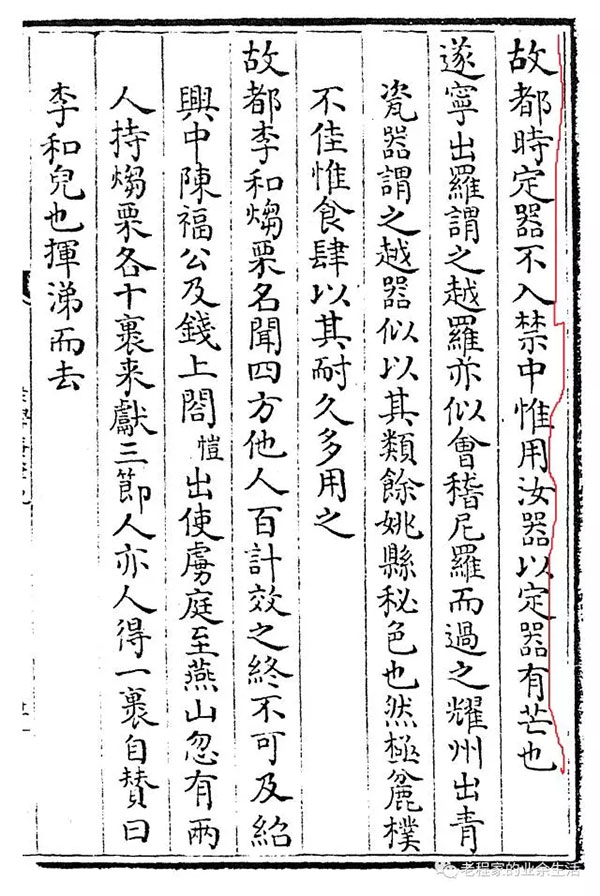 故都時定器不入禁中惟用汝器以定器有芒也
遂寧出羅謂之越羅亦似會稽尼羅而過之耀州出青
瓷器謂之越器似以其類餘姚縣秘色也然極麄樸
不佳惟食肆以其耐久多用之
故都李和煼栗名聞四方他人百計效之終不可及紹
興中陳福公及錢上閤愷出使虜庭至燕山忽有兩
人持煼栗各十裹来獻三節人亦人得一裹自贊曰
李和兒也揮涕而去
老程家的业余生活